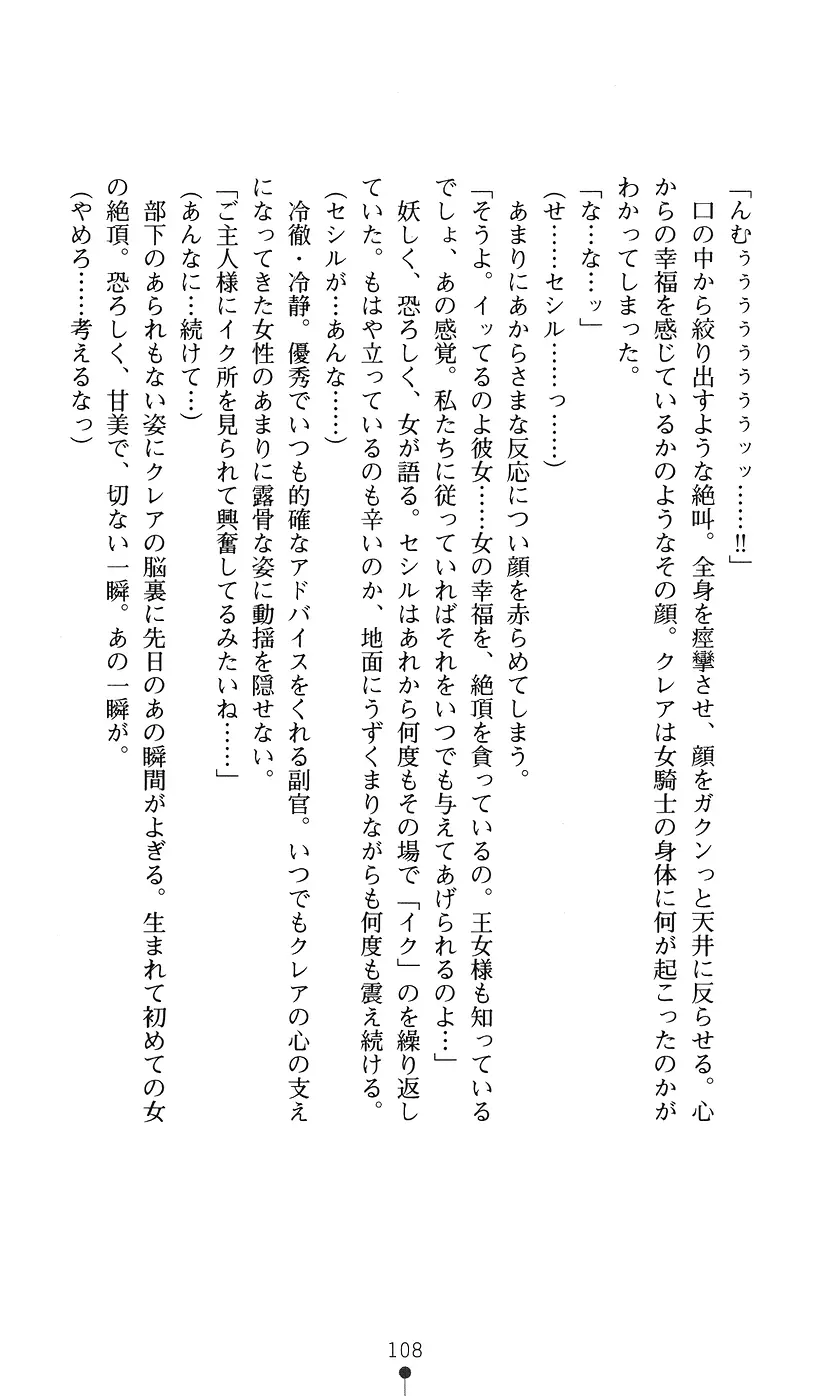 「んむぅぅぅぅぅぅぅぅッッ……!!」
　口の中から絞り出すような絶叫。全身を痙攣させ、顔をガクンっと天井に反らせる。心
からの幸福を感じているかのようなその顔。クレアは女騎士の身体に何が起こったのかが
わかってしまった。
「な…な…ッ」
(せ……セシル……っ……)
　あまりにあからさまな反応につい顔を赤らめてしまう。
「そうよ。イッてるのよ彼女……女の幸福を、絶頂を貪っているの。王女様も知っている
でしょ、あの感覚。私たちに従っていればそれをいつでも与えてあげられるのよ…」
　妖しく、恐ろしく、女が語る。セシルはあれから何度もその場で「イク」のを繰り返し
ていた。もはや立っているのも辛いのか、地面にうずくまりながらも何度も震え続ける。
(セシルが…あんな……)
　冷徹・冷静。優秀でいつも的確なアドバイスをくれる副官。いつでもクレアの心の支え
になってきた女性のあまりに露骨な姿に動揺を隠せない。
「ご主人様にイク所を見られて興奮してるみたいね……」
(あんなに…続けて…)
　部下のあられもない姿にクレアの脳裏に先日のあの瞬間がよぎる。生まれて初めての女
の絶頂。恐ろしく、甘美で、切ない一瞬。あの一瞬が。
(やめろ……考えるなっ)
108